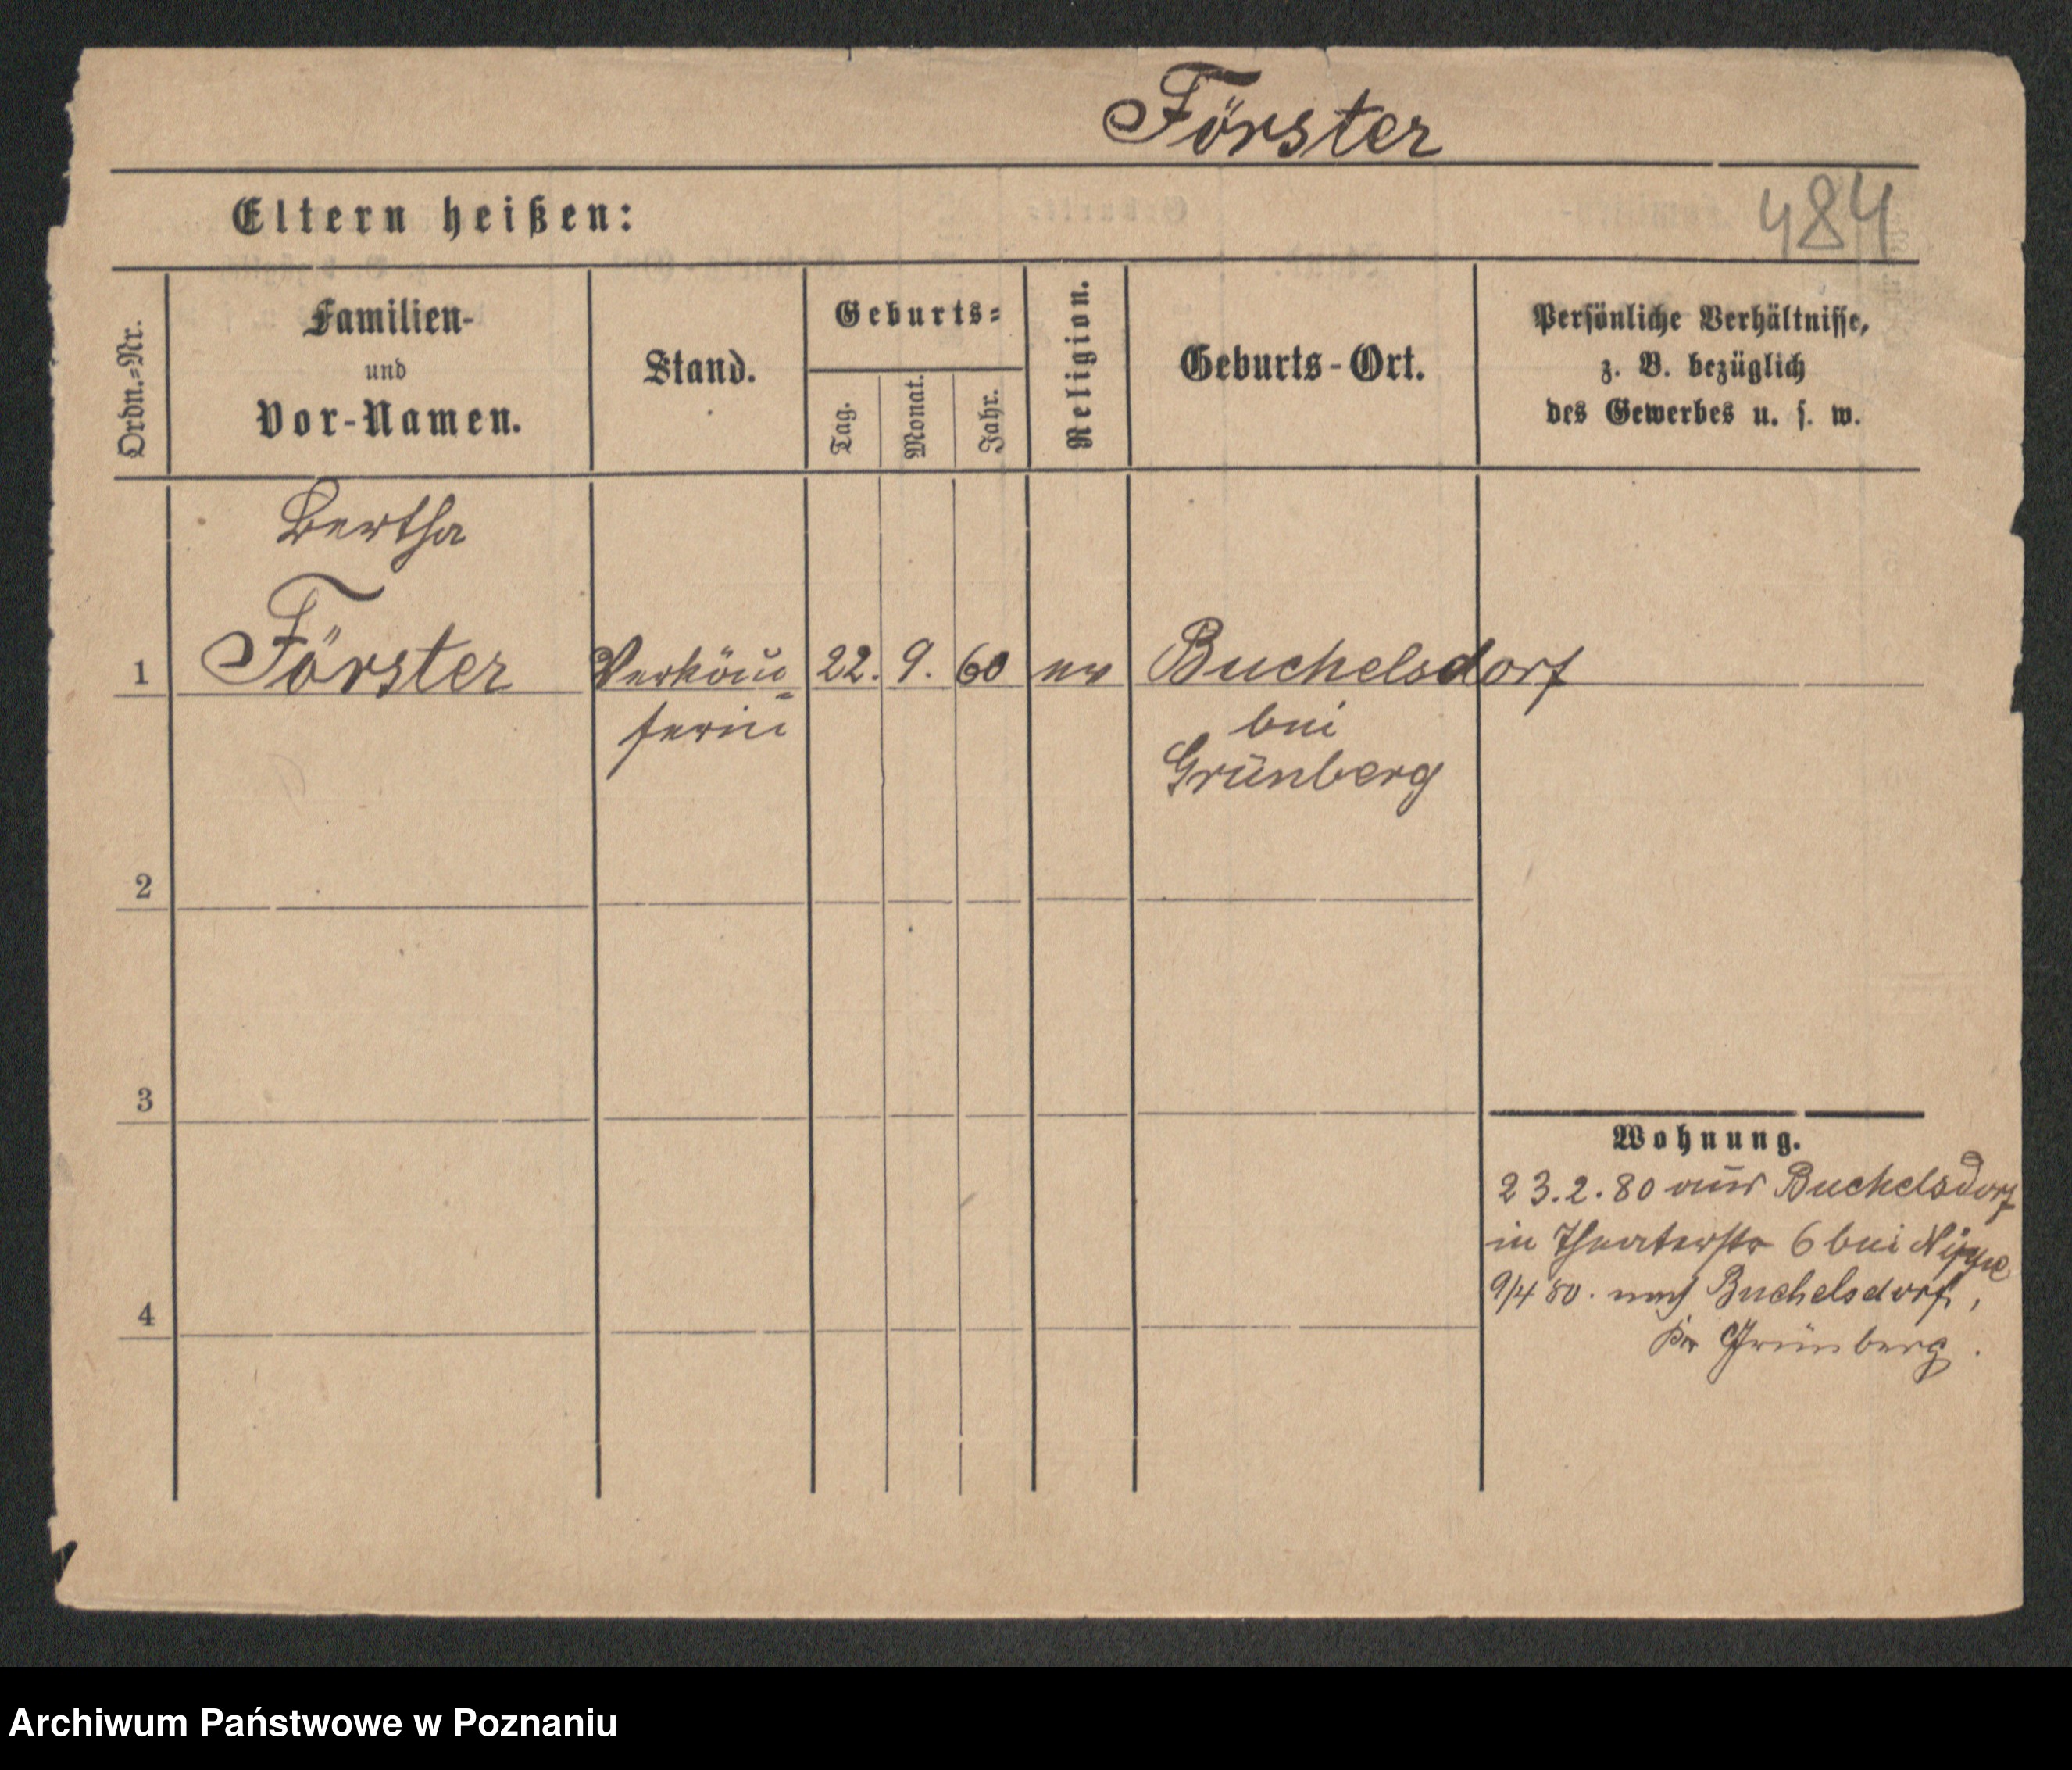 Förster
Eltern heißen:
484
Ordn.=Nr.
Familien-
und
Vor-Namen.
Stand.
Geburts=
Tag.
Monat.
Jahr.
Religion.
Geburts-Ort.
Persönliche Verhältnisse,
z. B. bezüglich
des Gewerbes u. s. w.
Bertha
1 Förster Verkäu= 22. 9. 60 ev Buchelsdorf
ferin bei
Grünberg
2
3
Wohnung.
23.2.80 aus Buchelsdorf
in Theaterstr 6 bei
9/4 80. nach Buchelsdorf,
4
Grünberg.
Archiwum Państwowe w Poznaniu